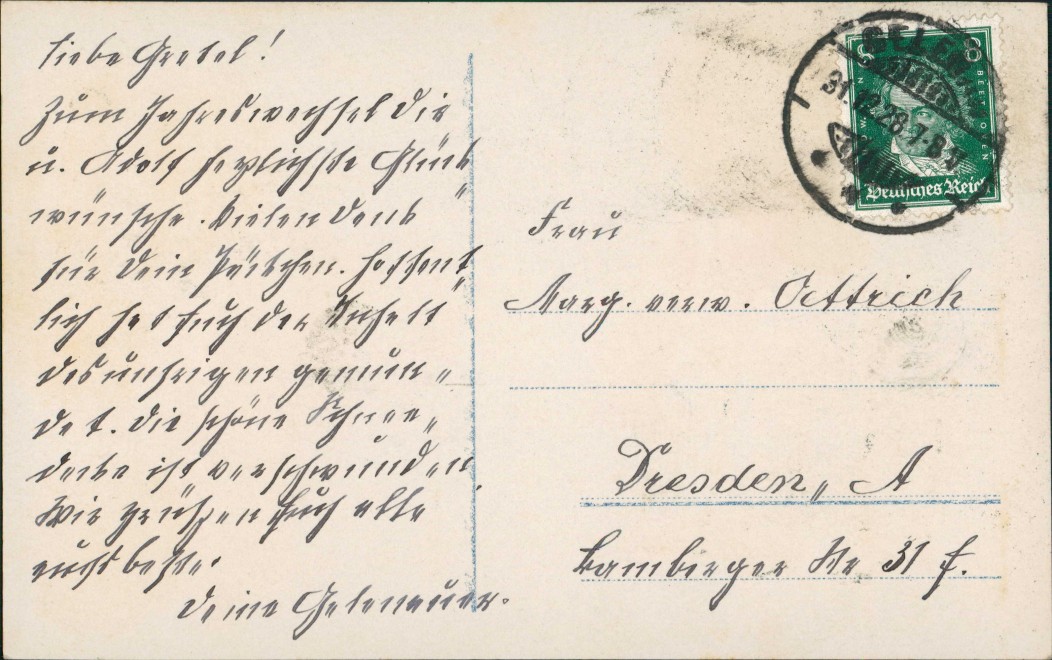 Liebe Gretel!
Zum Jahreswechsel Dir
u. Adolf herzlichste Glück-
wünsche. Vielen Dank
für Dein Päckchen. Hoffent-
lich hat Euch der Inhalt
des unsrigen gemun-
det. Die schöne Schnee-
decke ist verschwunden.
Wir grüßen Euch alle
aufs beste.
Deine Gelenauer.
GELENAU
31.12.28.7-8
8 8
BEETHOVEN
Deutsches Reich
Frau
Marg. verw. Oettrich
Dresden, A
Bamberger Str 31 I.